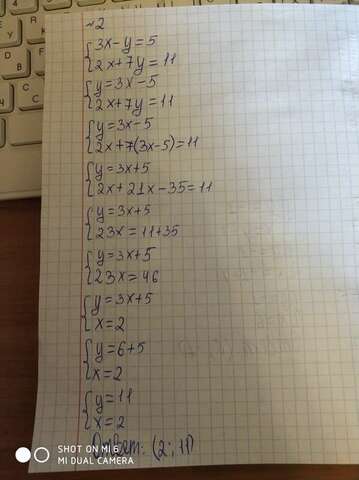 №2
{3x-y=5
{2x+7y=11
{y=3x-5
{2x+7y=11
{y=3x-5
{2x+7(3x-5)=11
{y=3x+5
{2x+21x-35=11
{y=3x+5
{23x=11+35
{y=3x+5
{23x=46
{y=3x+5
{x=2
{y=6+5
{x=2
{y=11
{x=2
Ответ: (2; 11)
SHOT ON MI 6
MI DUAL CAMERA